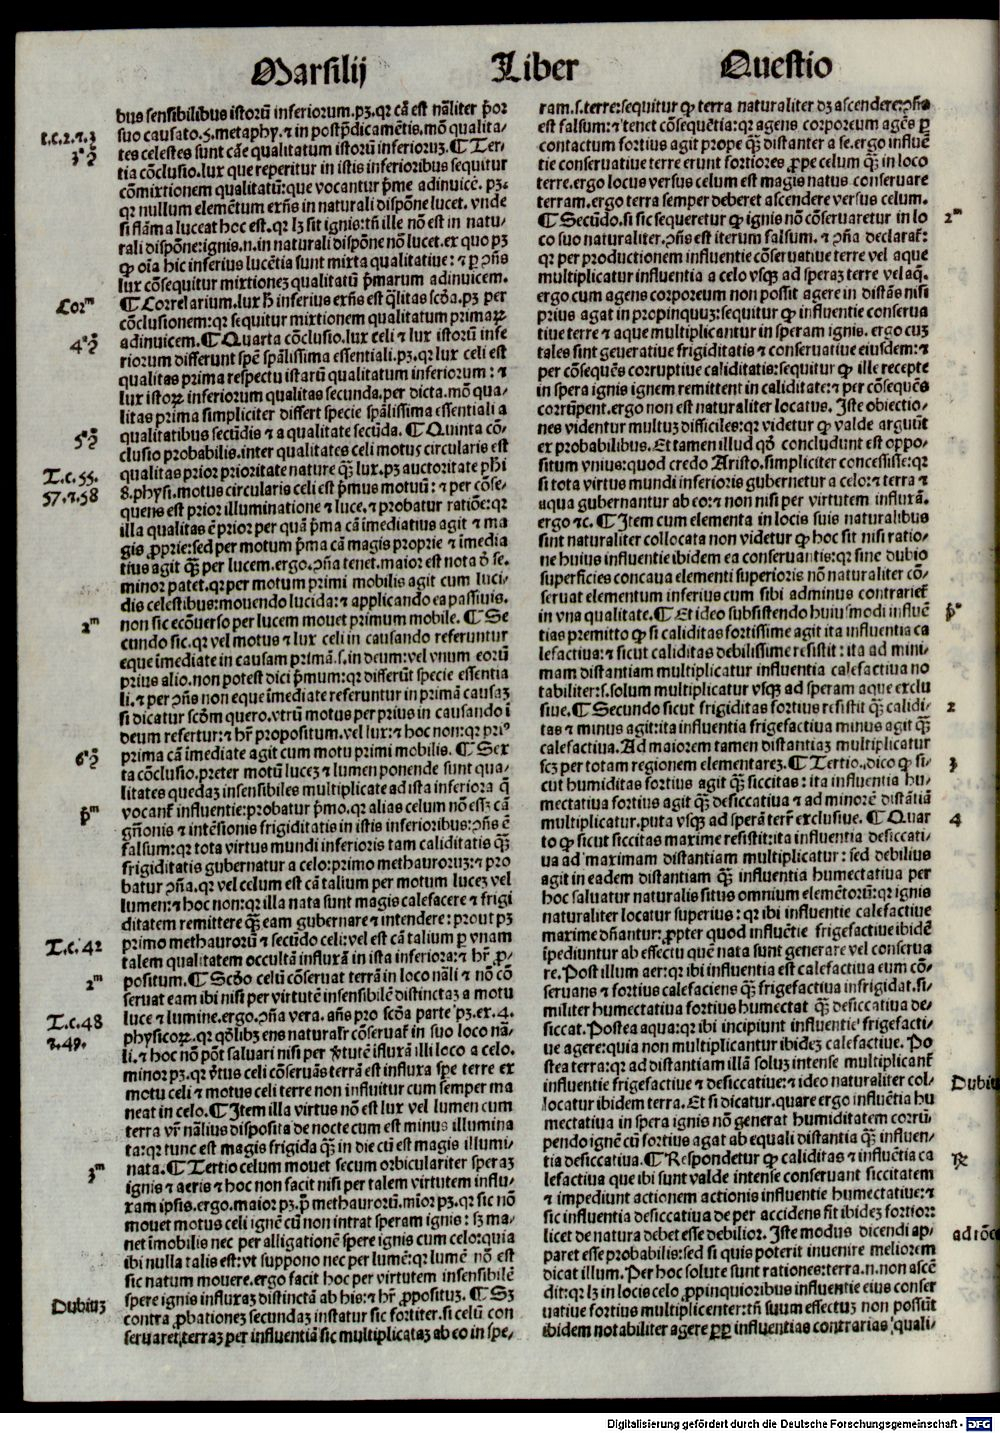 Marsilij Liber Questio
bus sensibilibus istorū inferiorum.pȝ.qr cā est nāliter p̄or
t.c.2.⁊.3
suo causato.5.metaphy.⁊ in postp̄dicamētis.mō qualita⸗
3ª ꝯ̄
tes celestes sunt cāe qualitatum istorū inferioruȝ.¶Ter⸗
tia cōclusio.lux que reperitur in istis inferioribus sequitur
cōmixtionem qualitatū:que vocantur p̄me adinuicē. pȝ.
qr nullum elemētum exn̄s in naturali dispōne lucet. vnde
si flāma luceat hoc est.qr lȝ sit ignis:tn̄ ille nō est in natu⸗
rali dispōne:ignis.n.in naturali dispōne nō lucet.ex quo pȝ
ꝙ oīa hic inferius lucētia sunt mixta qualitatiue: ⁊ ꝑ ꝯn̄s
lux cōsequitur mixtioneȝ qualitatū p̄marum adinuicem.
Corᵐ
¶Correlarium.lux h̄ inferius exn̄s est q̄litas scd̄a.pȝ per
cōclusionem:qr sequitur mixtionem qualitatum primaꝝ
4ª ꝯ̄
adinuicem.¶Quarta cōclusio.lux celi ⁊ lux istorū infe
riorum differunt spē spālissima essentiali.pȝ.qr lux celi est
qualitas prima respectu istarū qualitatum inferiorum : ⁊
lux istoꝝ inferiorum qualitas secunda.per dicta.mō qua⸗
litas prima simpliciter differt specie spālissima essentiali a
5ª ꝯ̄
qualitatibus secūdis ⁊ a qualitate secūda. ¶Quinta cō⸗
clusio probabilis.inter qualitates celi motus circularis est
T.c.55.
qualitas prior prioritate nature q̄ȝ lux.pȝ auctoritate ph̄i
57.⁊.58
8.physi.motus circularis celi est p̄mus motuū: ⁊ per cōse⸗
quens est prior illuminatione ⁊ luce.⁊ probatur ratiōe:qr
illa qualitas ē prior per quā p̄ma cā imediatius agit ⁊ ma
gis ꝓprie:sed per motum p̄ma cā magis proprie ⁊ imedia
tius agit q̄ȝ per lucem.ergo.ꝯn̄a tenet.maior est nota ð se.
minor patet.qr per motum primi mobilis agit cum luci⸗
dis celestibus:mouendo lucida:⁊ applicando ea passiuis.
2ᵐ
non sic ecōuerso per lucem mouet primum mobile. ¶Se
cundo sic.qr vel motus ⁊ lux celi in causando referuntur
eque imediate in causam primā.s.in deum:vel vnum eorū
prius alio.non potest dici p̄mum:qr differūt specie essentia
li.⁊ per ꝯn̄s non eque imediate referuntur in primā causaȝ
si dicatur scd̄m quero.vtrū motus per prius in causando ī
deum refertur:⁊ hr̄ propositum.vel lux:⁊ hoc non:qr pri⁹
6ª ꝯ̄
prima cā imediate agit cum motu primi mobilis. ¶Sex
ta cōclusio.preter motū luceȝ ⁊ lumen ponende sunt qua⸗
litates quedaȝ insensibiles multiplicate ad ista inferiora q̄
p̄ᵐ
vocanr̄ influentie:probatur p̄mo.qr alias celum nō esseȝ cā
gn̄onis ⁊ intēsionis frigiditatis in istis inferioribus:ꝯn̄s ē
falsum:qr tota virtus mundi inferioris tam caliditatis q̄ȝ
frigiditatis gubernatur a celo:primo methauroruȝ:⁊ pro
batur ꝯn̄a.qr vel celum est cā talium per motum luceȝ vel
lumen:⁊ hoc non:qr illa nata sunt magis calefacere ⁊ frigi
ditatem remittere q̄ȝ eam gubernare ⁊ intendere: prout pȝ
T.c.42
primo methaurorū ⁊ secūdo celi:vel est cā talium ꝑ vnam
talem qualitatem occultā influxā in ista inferiora:⁊ hr̄ ꝓ⸗
2ᵐ
positum.¶Scd̄o celū cōseruat terrā in loco nāli ⁊ nō cō
seruat eam ibi nisi per virtutē insensibilē distinctaȝ a motu
T.c.48
luce ⁊ lumine.ergo.ꝯn̄a vera. an̄s pro scd̄a parte pȝ.ex.4.
⁊.49.
physicoꝝ.qr qd̄libȝ ens naturalr̄ cōseruar̄ in suo loco nā⸗
li.⁊ hoc nō pōt saluari nisi per v̄tutē īfluxā illi loco a celo.
minor pȝ.qr v̄tus celi cōseruās terrā est influxa spe terre ex
motu celi ⁊ motus celi terre non influitur cum semper ma
neat in celo.¶Item illa virtus nō est lux vel lumen cum
terra vr̄ nālius disposita de nocte cum est minus illumina
ta:qr tunc est magis frigida q̄ȝ in die cū est magis illumi⸗
3ᵐ
nata.¶Tertio celum mouet secum orbiculariter speraȝ
ignis ⁊ aeris ⁊ hoc non facit nisi per talem virtutem influ⸗
xam ipsis.ergo.maior pȝ.p̄ methaurorū.mīor pȝ.qr sic nō
mouet motus celi ignē cū non intrat speram ignis: sȝ ma⸗
net īmobilis nec per alligationē spere ignis cum celo:quia
ibi nulla talis est:vt suppono nec per lumē:qr lumē nō est
sic natum mouere.ergo facit hoc per virtutem insensibilē
Dubiuȝ
spere ignis influxaȝ distinctā ab his:⁊ hr̄ ꝓpositūȝ. ¶Sȝ
contra ꝓbationeȝ secundaȝ instatur sic fortiter.si celū con
seruaret terraȝ per influentiā sic multiplicataȝ ab eo in spe⸗
ram.s.terre:sequitur ꝙ terra naturaliter dȝ ascendere:ꝯn̄s
est falsum:⁊ tenet cōsequētia:qr agens corporeum agēs ꝑ
contactum fortius agit prope q̄ȝ distanter a se.ergo influē
tie conseruatiue terre erunt fortiores ꝓpe celum q̄ȝ in loco
terre.ergo locus versus celum est magis natus conseruare
terram.ergo terra semper deberet ascendere versus celum.
2ᵐ
¶Secūdo.si sic sequeretur ꝙ ignis nō cōseruaretur in lo
co suo naturaliter.ꝯn̄s est iterum falsum. ⁊ ꝯn̄a declarar̄:
qr per productionem influentie cōseruatiue terre vel aque
multiplicatur influentia a celo vsqȝ ad speraȝ terre vel aq̄.
ergo cum agens corporeum non possit agere in distās nisi
prius agat in propinquuȝ:sequitur ꝙ influentie conserua
tiue terre ⁊ aque multiplicantur in speram ignis. ergo cuȝ
tales sint generatiue frigiditatis ⁊ conseruatiue eiusdem:⁊
per cōsequēs corruptiue caliditatis:sequitur ꝙ ille recepte
in spera ignis ignem remittent in caliditate:⁊ per cōsequēs
corrūpent.ergo non est naturaliter locatus. Iste obiectio⸗
nes videntur multuȝ difficiles:qr videtur ꝙ valde arguūt
ex probabilibus. Et tamen illud qd̄ concludunt est oppo⸗
situm vnius:quod credo Aristo.simpliciter concessisse:qr
si tota virtus mundi inferioris gubernetur a celo:⁊ terra ⁊
aqua gubernantur ab eo:⁊ non nisi per virtutem influxā.
ergo ⁊c. ¶Item cum elementa in locis suis naturalibus
sint naturaliter collocata non videtur ꝙ hoc sit nisi ratio⸗
ne huius influentie ibidem ea conseruantis:qr sine dubio
superficies concaua elementi superioris nō naturaliter cō⸗
seruat elementum inferius cum sibi adminus contrarier̄
p̄ᵒ
in vna qualitate.¶Et ideo subsistendo huiusmodi influē
tias premitto ꝙ si caliditas fortissime agit ita influentia ca
lefactiua:⁊ sicut caliditas debilissime resistit:ita ad mini⸗
mam distantiam multiplicatur influentia calefactiua no
tabiliter:s.solum multiplicatur vsqȝ ad speram aque exclu
2
siue.¶Secundo sicut frigiditas fortius resistit q̄ȝ calidi⸗
tas ⁊ minus agit:ita influentia frigefactiua minus agit q̄ȝ
calefactiua. Ad maiorem tamen distantiaȝ multiplicatur
3
scȝ per totam regionem elementareȝ.¶Tertio.dico ꝙ si⸗
cut humiditas fortius agit q̄ȝ siccitas : ita influentia hu⸗
mectatiua fortius agit q̄ȝ desiccatiua ⁊ ad minorē distātiā
4
multiplicatur.puta vsqȝ ad sperā terr̄ exclusiue. ¶Quar
to ꝙ sicut siccitas maxime resistit:ita influentia desiccati⸗
ua ad maximam distantiam multiplicatur: sed debilius
agit in eadem distantiam q̄ȝ influentia humectatiua per
hoc saluatur naturalis situs omnium elemētorū:qr ignis
naturaliter locatur superius: qr ibi influentie calefactiue
maxime dn̄antur:ꝓpter quod influētie frigefactiue ibidē
īpediuntur ab effectu quē nata sunt generare vel conserua
re. Post illum aer:qr ibi influentia est calefactiua eum cō⸗
seruans ⁊ fortius calefaciens q̄ȝ frigefactiua infrigidat.si⸗
militer humectatiua fortius humectat q̄ȝ desiccatiua de⸗
siccat. Postea aqua:qr ibi incipiunt influentie frigefacti⸗
ue agere:quia non multiplicantur ibideȝ calefactiue. Po
stea terra:qr ad distantiam illā soluȝ intense multiplicanr̄
Dubiū
influentie frigefactiue ⁊ desiccatiue:⁊ ideo naturaliter col⸗
locatur ibidem terra. Et si dicatur.quare ergo influētia hu
mectatiua in spera ignis nō generat humiditatem corrū⸗
pendo ignē cū fortius agat ab equali distantia q̄ȝ influen⸗
℞
tia desiccatiua.¶Respondetur ꝙ caliditas ⁊ influētia ca
lefactiua que ibi sunt valde intense conseruant siccitatem
⁊ impediunt actionem actionis influentie humectatiue:⁊
sic influentia desiccatiua de per accidens fit ibideȝ fortior:
ad rōes
licet de natura debet esse debilior. Iste modus dicendi ap⸗
paret esse probabilis:sed si quis poterit inuenire meliorem
dicat illum. Per hoc solute sunt rationes:terra.n.non ascē
dit:qr lȝ in locis celo ꝓpinquioribus influentie eius conser
uatiue fortius multiplicenter:tn̄ suum effectuȝ non possūt
ibidem notabiliter agere ꝓpꝑ influentias contrarias quali⸗
Digitalisierung gefördert durch die Deutsche Forschungsgemeinschaft - DFG